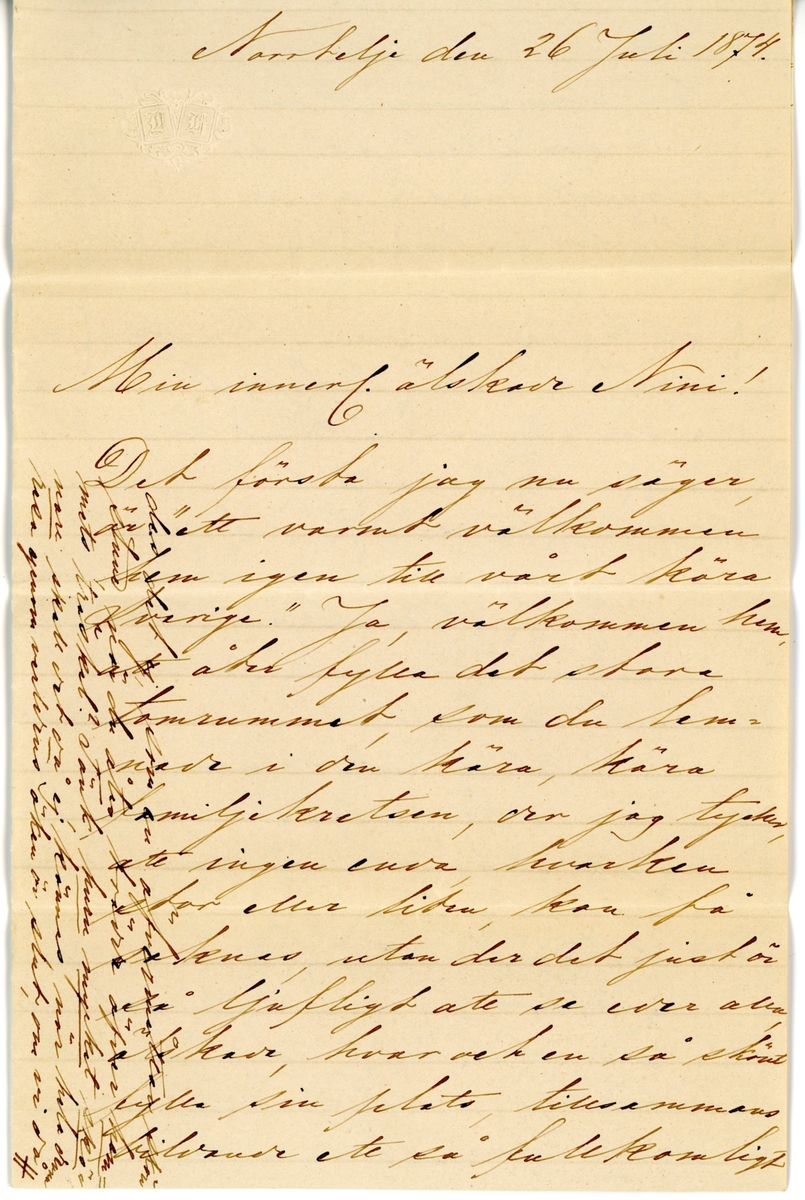 Norrtelje den 26 Juli 1874.
Min innerl. älskade Nini!
Det första jag nu säger,
är "ett varmt välkommen
hem igen till vårt kära
Sverige." Ja, välkommen hem,
att åter fylla det stora
tomrummet, som du lem=
nade i den kära, kära
familjekretsen, der jag tycker,
att ingen enda, hvarken
stor eller liten, kan få
saknas, utan der det just är
så ljufligt att se eder alla,
älskade, hvar och en så skönt
fylla sin plats, tillsammans
bildande ett så fullkomligt
du åter
huru mycket
nare skall det då ej kännas när hela
resa genom verldens öken är slut, om vi då
#